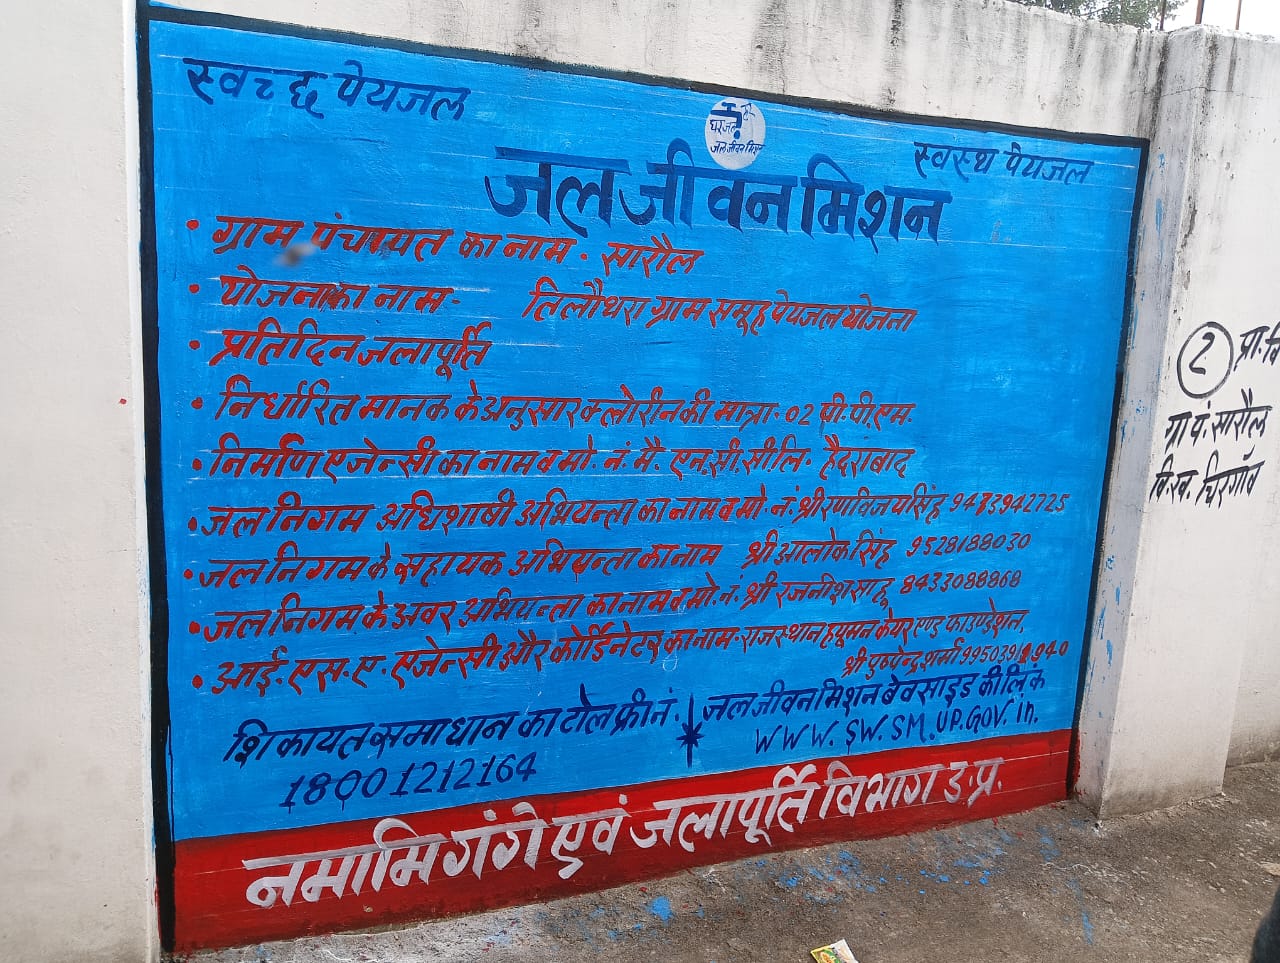 स्वच्छ पेयजल
हर घर जल
जल जीवन मिशन
स्वस्थ पेयजल
जल जीवन मिशन
• ग्राम पंचायत का नाम - सारौल
• योजना का नाम - तिलौथरा ग्राम समूह पेयजल योजना
• प्रतिदिन जलापूर्ति
• निर्धारित मानक के अनुसार क्लोरीन की मात्रा - 02 पी.पी.एम.
• निर्माण एजेन्सी का नाम व मो. नं. मै. एन.सी.सी.लि. हैदराबाद
• जल निगम अधिशाषी अभियन्ता का नाम व मो. नं. श्री रणविजय सिंह
• जल निगम के सहायक अभियन्ता का नाम श्री आलोक सिंह 9528188030
• जल निगम के अवर अभियन्ता का नाम व मो. नं. श्री रजनीश साहू 8433088868
• आई.एस.ए. एजेन्सी और कोर्डिनेटर का नाम - राजस्थान ह्यूमन केयर एण्ड फाउण्डेशन,
श्री पुष्पेन्द्र शर्मा
शिकायत समाधान का टोल फ्री नं.
18001212164
जल जीवन मिशन बेवसाइड की लिंक
WWW. SW. SM. UP. GOV. in.
नमामि गंगे एवं जलापूर्ति विभाग उ.प्र.
2 प्रा. वि
ग्रा पं. सारौल
वि.ख. चिरगाँव